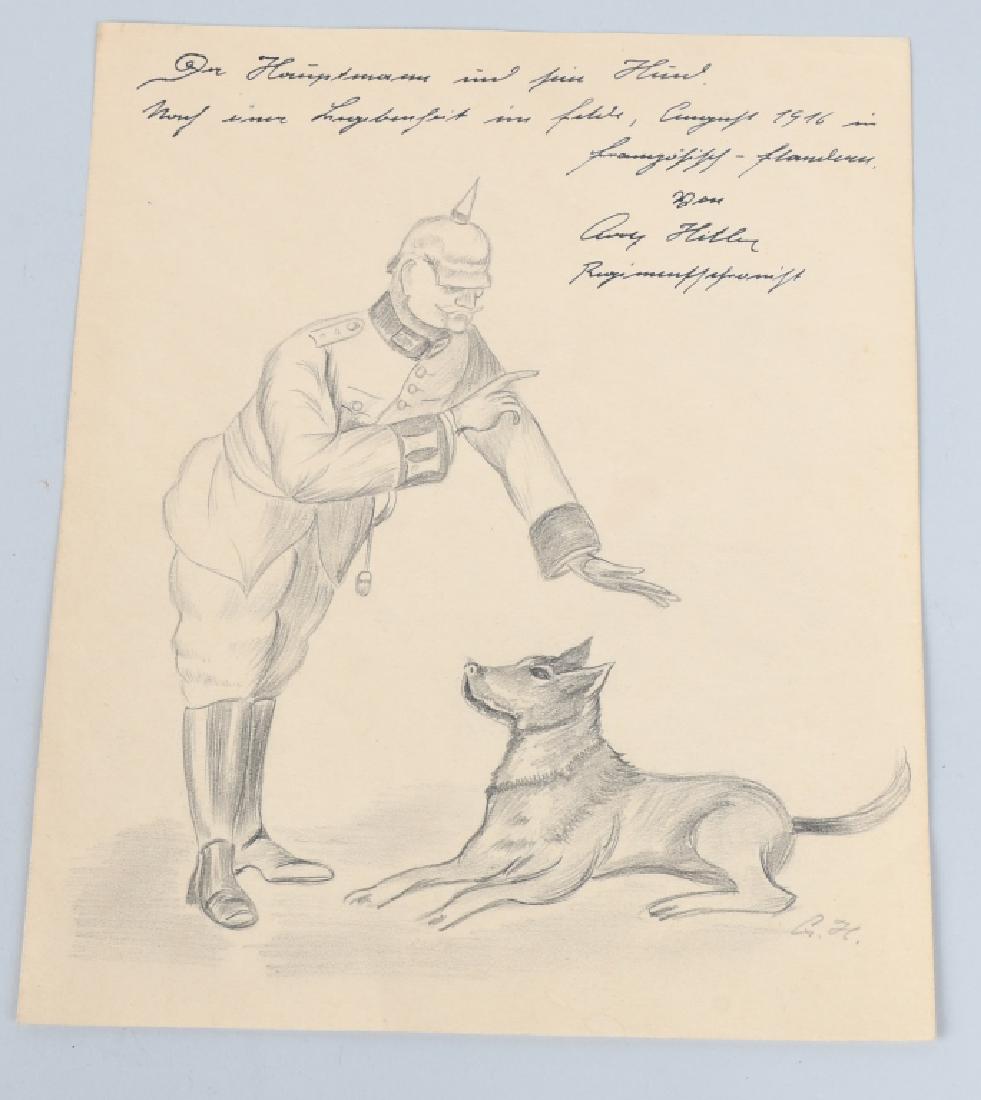 Der Hauptmann und sein Hund.
Nach einer Begebenheit im felde, August 1916 in
französisch - flandern.
von
Hitler
A. H.